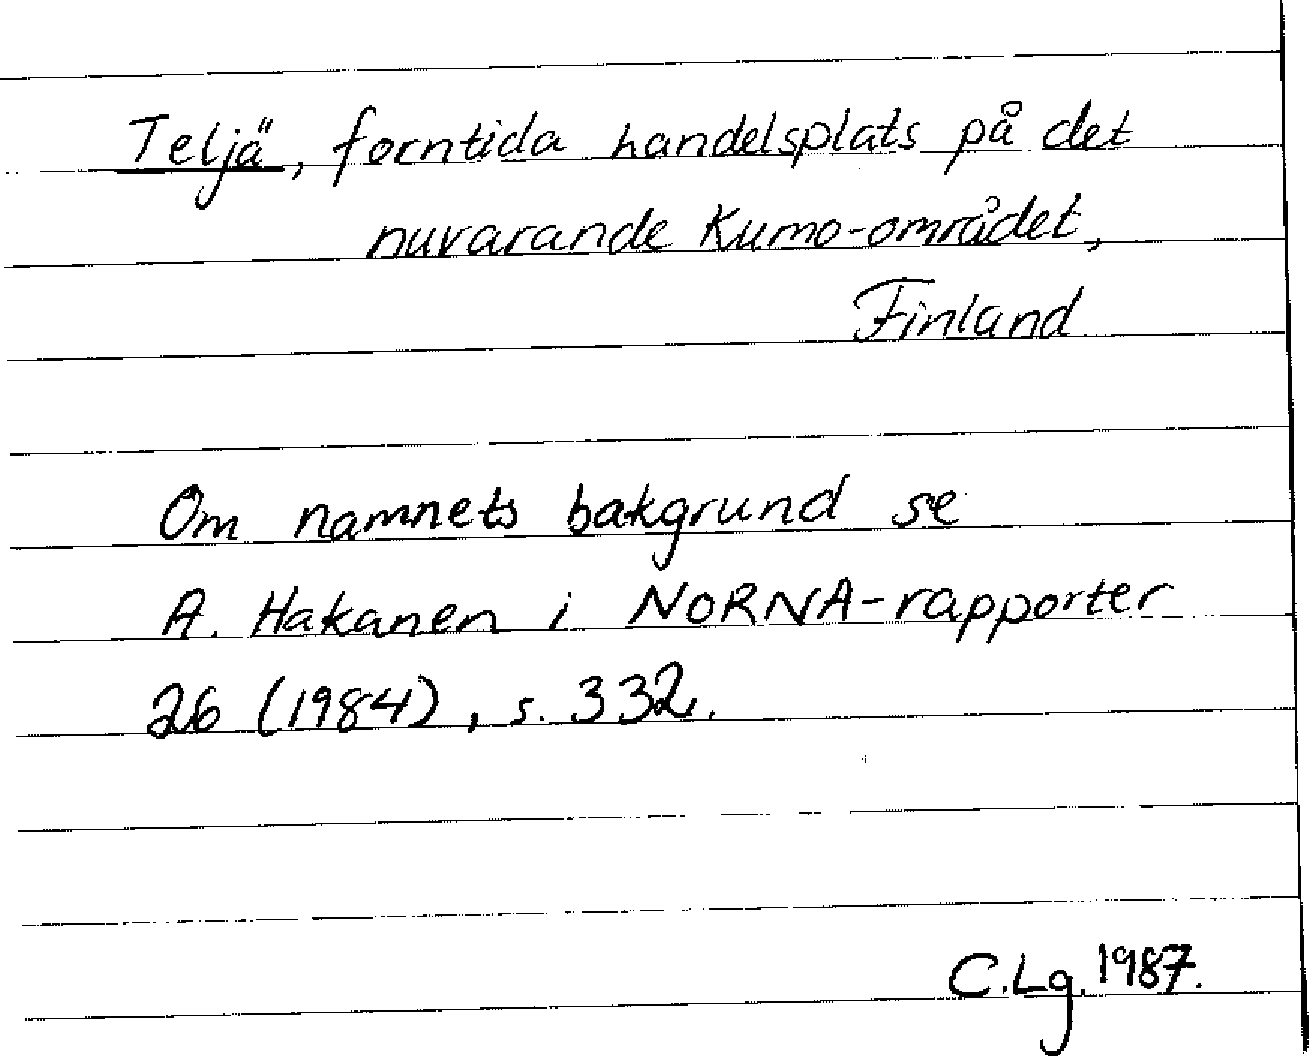 Teljä, forntida handelsplats på det
nuvarande Kumo-området,
Finland
Om namnets bakgrund se
A. Hakanen i NORNA-rapporter
26 (1984), s. 332.
C.Lg. 1987.